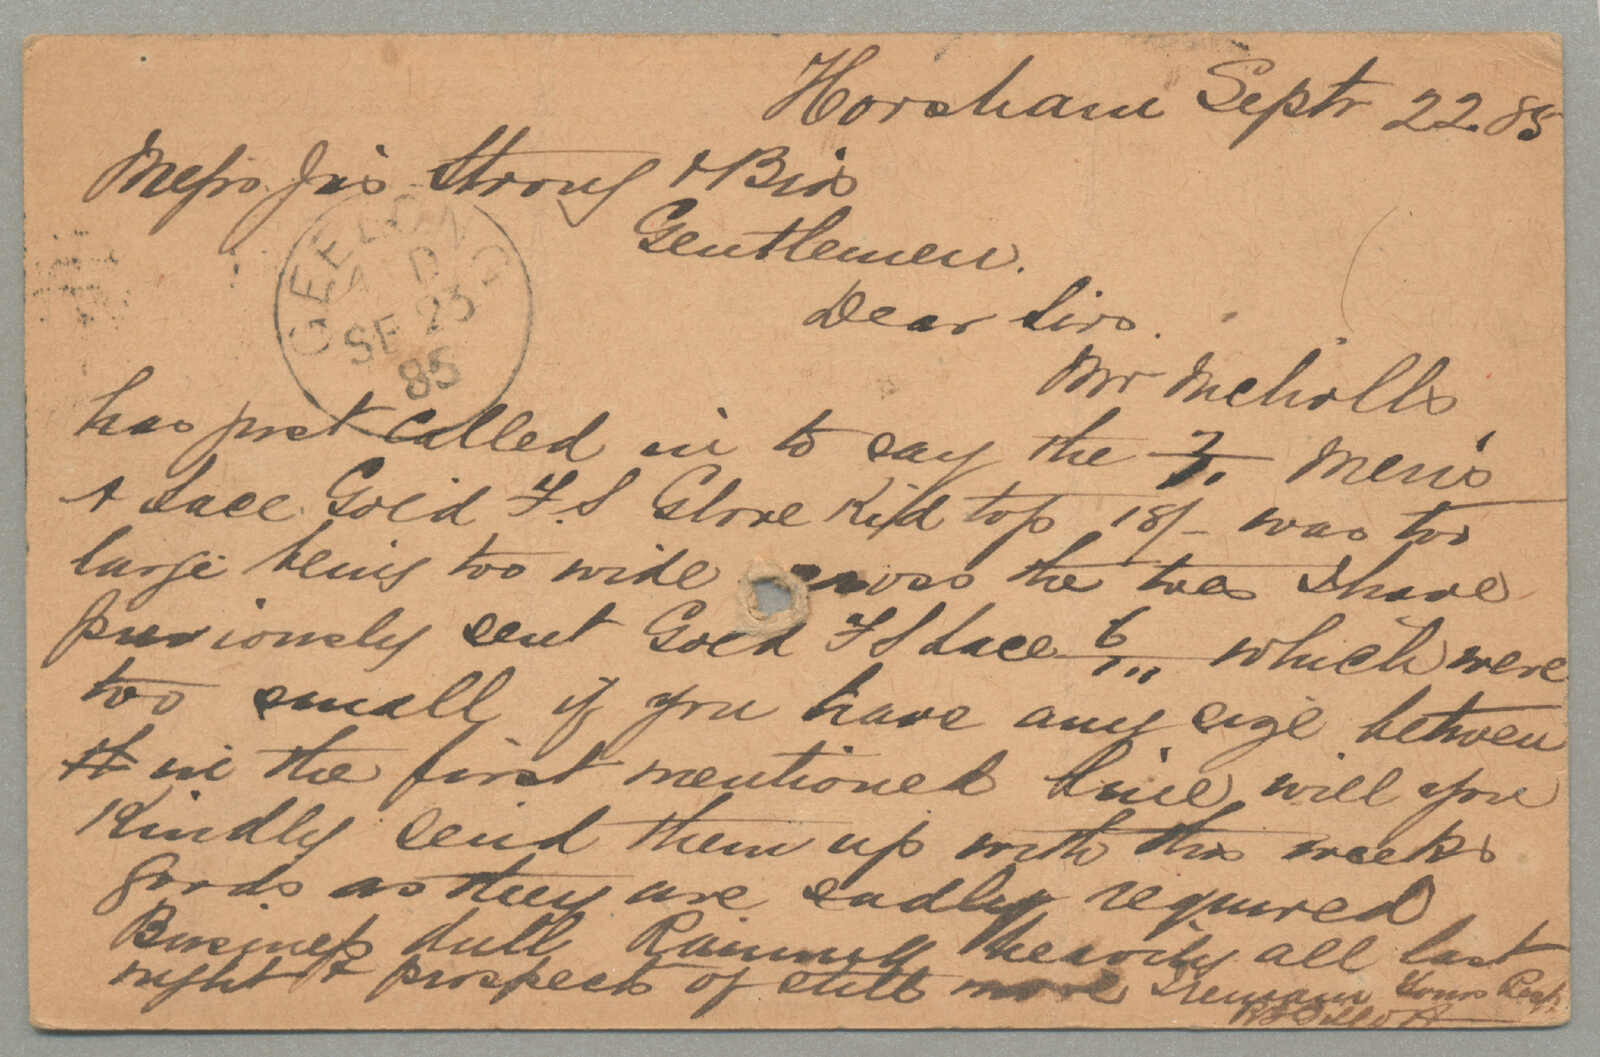 Horsham Septr 22.85
Messrs Jas Strong & Bros
Gentlemen.
Dear Sirs.
GEELONG
SE 23
85
Mr Nicholls
has just called in to say the 7/1 Men's
& Lace Gold F.S Glove Kid top 18/- was too
large being too wide across the toes I have
previously sent Gold F S Lace 6/111 which were
too small if you have any size between
in the first mentioned line will you
Kindly send them up with this weeks
goods as they are sadly required
Business dull Raining heavily all last
night & prospects of still more I remain Yours Resp